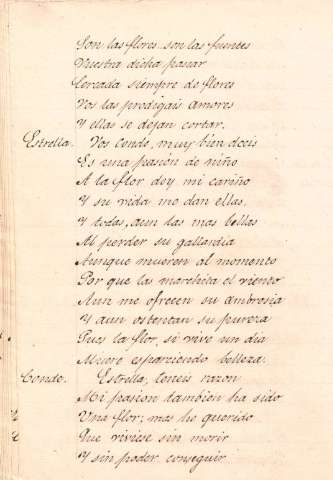 Son las flores son las fuentes
Vuestra dicha pasar
Cercada siempre de flores
Vos las prodigais amores
Y ellas se dejan cortar.
Estrella. Vos conde, muy bien decis
Es una pasion de niño
A la flor doy mi cariño
Y su vida me dan ellas.
Y todas, aun las mas bellas
Al perder su gallardia
Aunque mueren al momento
Por que las marchita el viento
Aun me ofrecen su ambrosia
Y aun ostentan su pureza
Pues la flor, si vive un dia
Muere esparziendo belleza.
Conde. Estrella, teneis razon
Mi pasion tambien ha sido
Una flor; mas he querido
Que viviese sin morir
Y sin poder conseguir